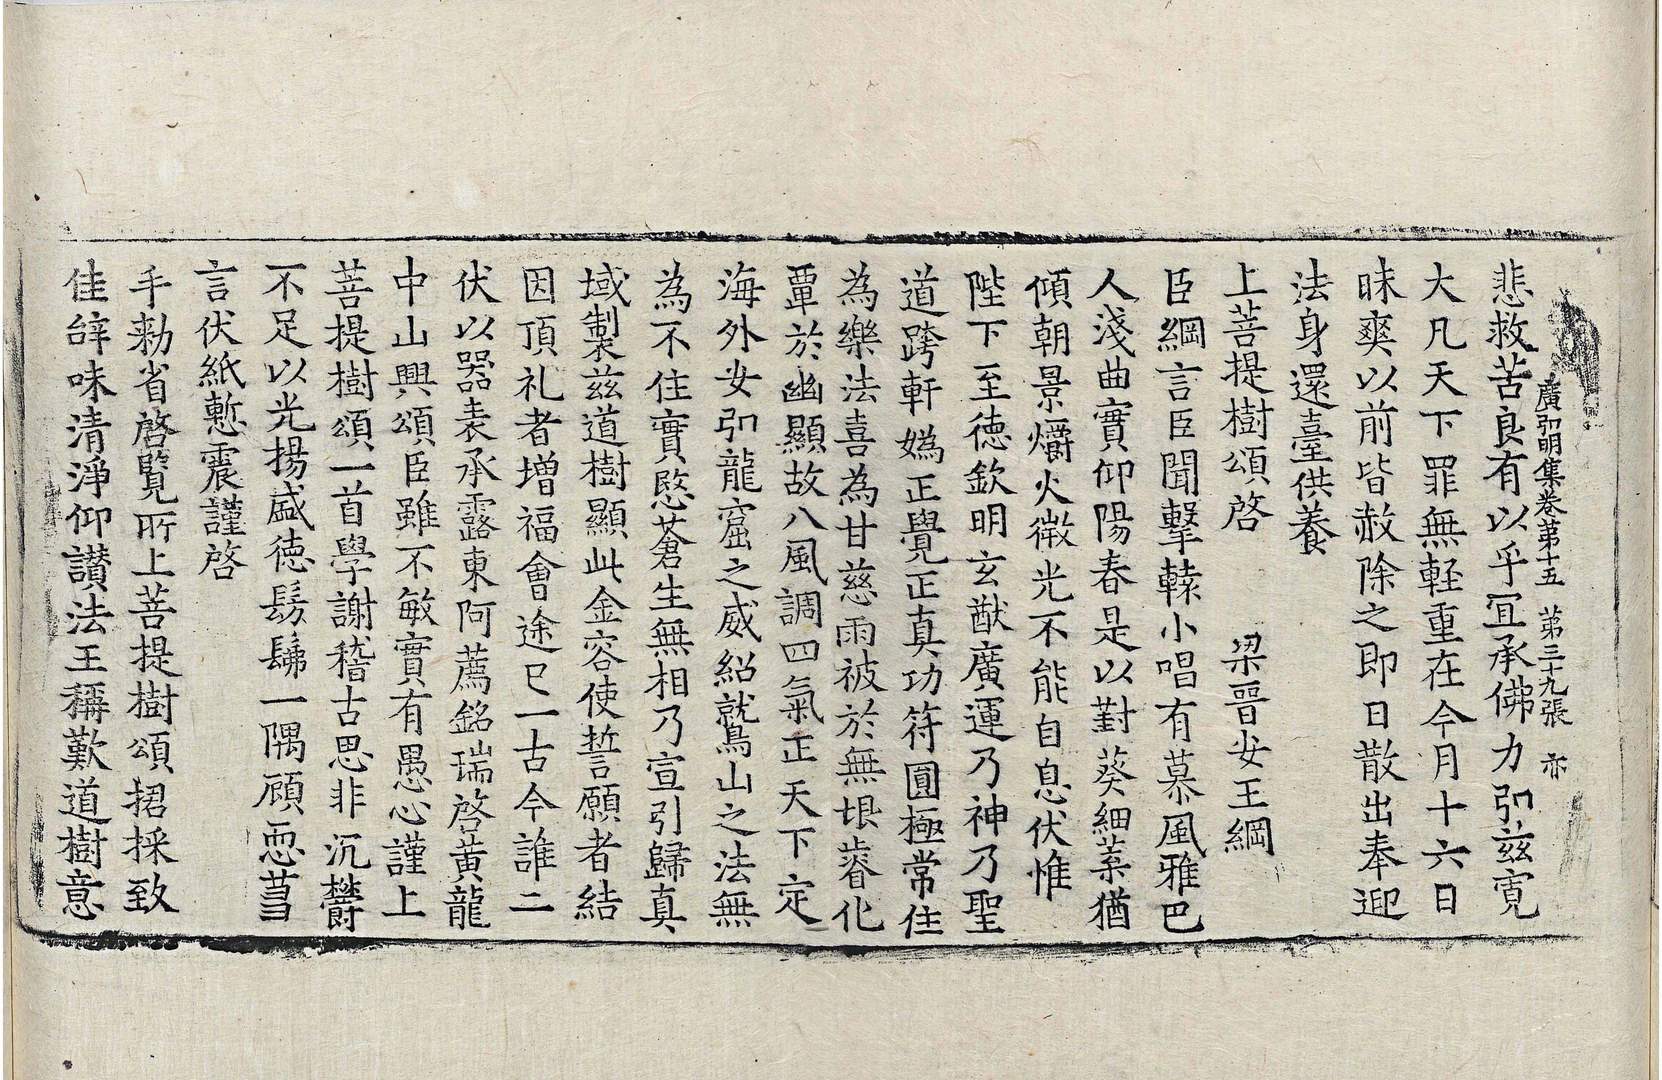 廣弘明集卷苐十五　苐三十九張　亦
悲救苦良有以乎冝承佛力弘兹寛
大凡天下罪無軽重在今月十六日
昧爽以前皆赦除之即日散出奉迎
法身還臺供養
上菩提樹頌啓　梁晋安王綱
臣綱言臣聞擊轅小唱有慕風雅巴
人淺曲實仰陽春是以對葵細菜猶
傾朝景爝火微光不能自息伏惟
陛下至徳欽明玄猷廣運乃神乃聖
道跨軒媯正覺正真功符圓極常住
為樂法喜為甘慈雨被於無垠睿化
覃於幽顯故八風調四氣正天下定
海外安弘龍窟之威紹鷲山之法無
為不住實愍蒼生無相乃宣引歸真
域製兹道樹顯此金容使誓願者結
因頂礼者増福會途已一古今誰二
伏以器表承露東阿薦銘瑞啓黄龍
中山興頌臣雖不敏實有愚心謹上
菩提樹頌一首學謝稽古思非沉欝
不足以光揚盛徳髣髴一隅顧恧蒭
言伏紙慙震謹啓
手勑省啓覧所上菩提樹頌捃採致
佳辝味清淨仰讃法王稱歎道樹意